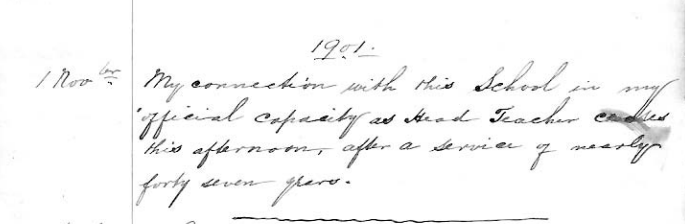 1901.
1 Nov ber My connection with this School in my
official capacity as Head Teacher ceases
this afternoon, after a service of nearly
forty seven years.